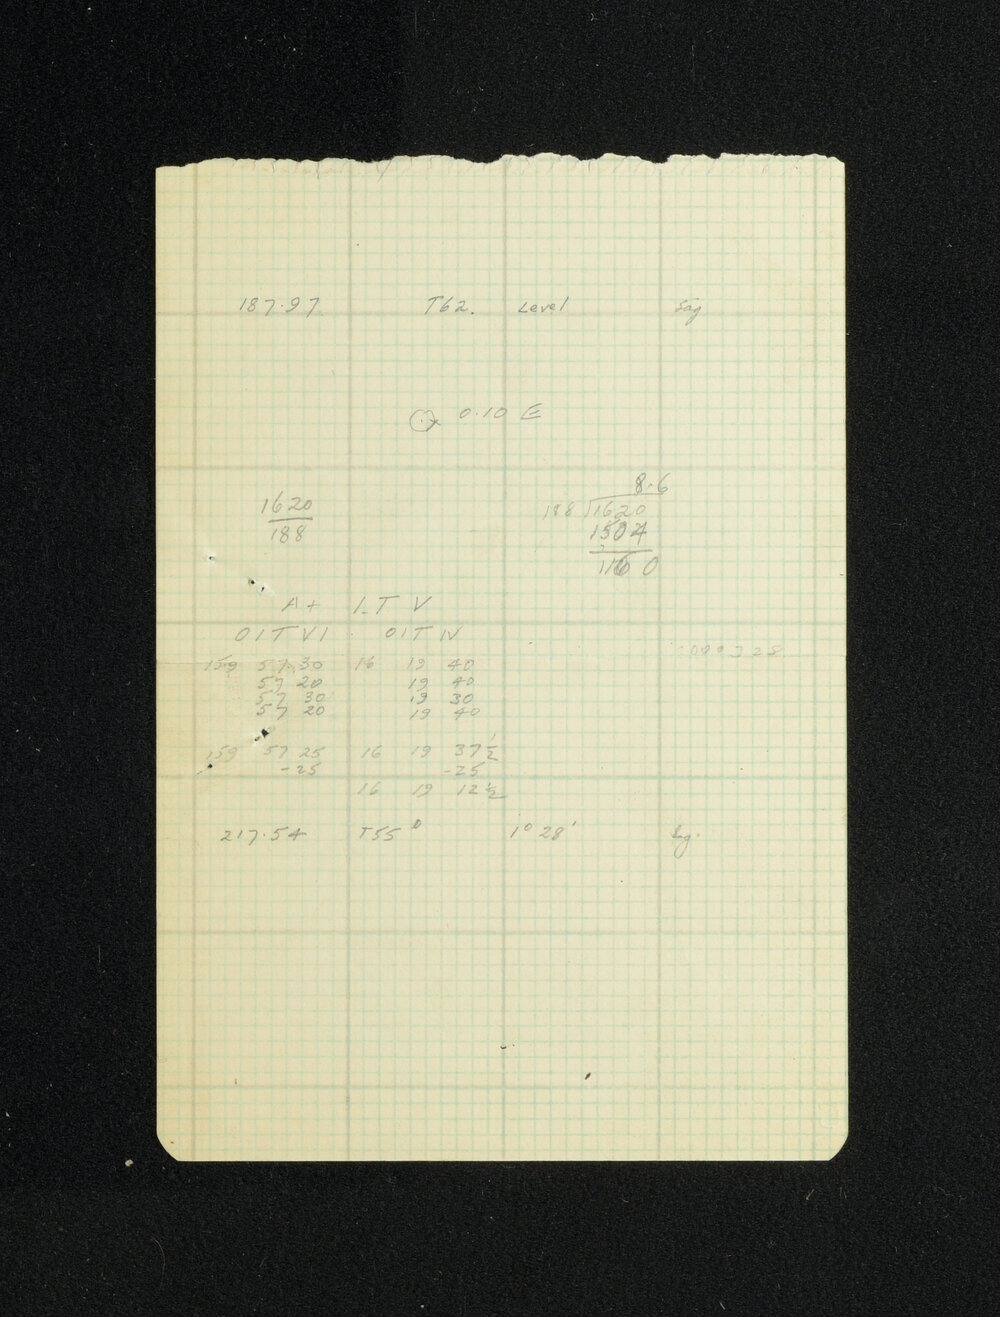 187.97 T62. Level Sag
0.10 E
8.6
1620 188 1620
188 1504
1160
A+ I T V
OITVI OITIV
159 57 30 16 19 40
57 20 19 40
57 30 19 30
57 20 19 40
159 57 25 16 19 37½
-25 -25
16 19 12½
217.54 T55° 1° 28' Sag.